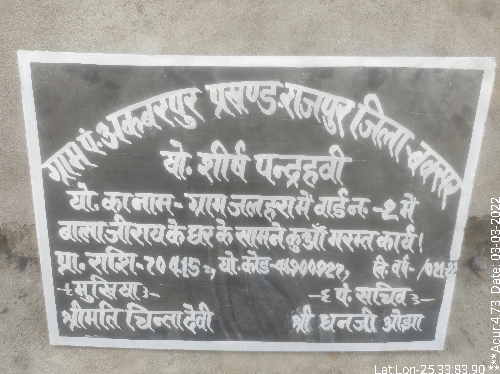 ग्राम पं. अकबरपुर प्रखण्ड राजपुर जिला-बक्सर
यो. शीर्ष पन्द्रहवी
यो. का नाम - ग्राम जलहरा में वार्ड न. -2 में
बाला जी राय के घर के सामने कुआँ मरम्त कार्य।
प्रा. राशि - 70415=, यो. कोड
वि. वर्ष -
-{ मुखिया }-
-{ पं. सचिव }-
श्रीमति चिन्ता देवी
श्री धनजी ओझा
Lat Lon-25.33.83.90
***Acur:4.73 Date: 03-03-2022